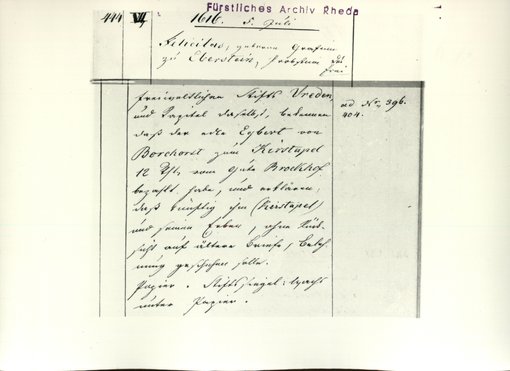 Fürstliches Archiv Rheda
444 VII 1616. 5. Juli
Felicitas, geborene Gräfinn
zu Eberstein, Pröbstinn des
frei
freiweltlichen Stifts Vreden,
und Capitel daselbst, bekennen
daß der edle Egbert von
Borchorst zum Kirstapel
12 vom Gute Brockhof
bezahlt habe, und erklären,
daß künftig ihm (Kirstapel)
und seinen Erben, ohne Rück-
sicht auf ältere Briefe, Beleh-
nung geschehen solle.
Papier. Stiftssiegel: Wachs
unter Papier.
ad Nr. 396.
404.